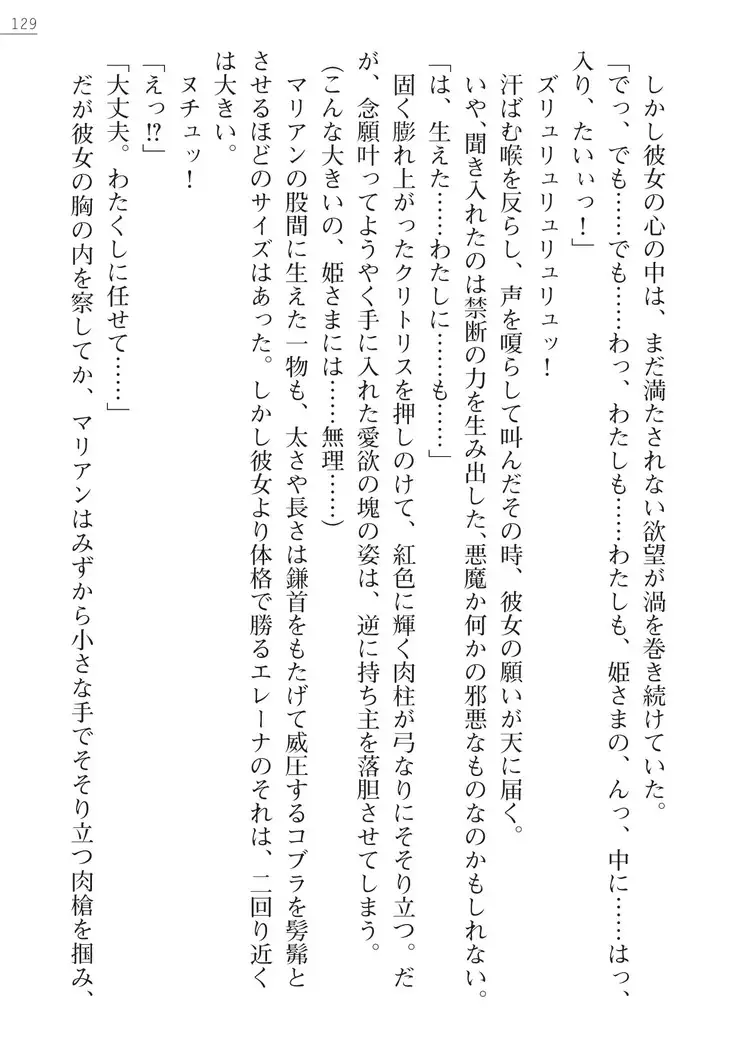 129
しかし彼女の心の中は、まだ満たされない欲望が渦を巻き続けていた。
「でっ、でも……でも……わっ、わたしも……わたしも、姫さまの、んっ、中に……はっ、
入り、たいぃっ！」
ズリュリュリュリュリュッ！
汗ばむ喉を反らし、声を嗄らして叫んだその時、彼女の願いが天に届く。
いや、聞き入れたのは禁断の力を生み出した、悪魔か何かの邪悪なものなのかもしれない。
「は、生えた……わたしに……も……」
固く膨れ上がったクリトリスを押しのけて、紅色に輝く肉柱が弓なりにそそり立つ。だ
が、念願叶ってようやく手に入れた愛欲の塊の姿は、逆に持ち主を落胆させてしまう。
（こんな大きいの、姫さまには……無理……）
マリアンの股間に生えた一物も、太さや長さは鎌首をもたげて威圧するコブラを髣髴と
させるほどのサイズはあった。しかし彼女より体格で勝るエレーナのそれは、二回り近く
は大きい。
ヌチュッ！
「えっ!?」
「大丈夫。わたくしに任せて……」
だが彼女の胸の内を察してか、マリアンはみずから小さな手でそそり立つ肉槍を掴み、